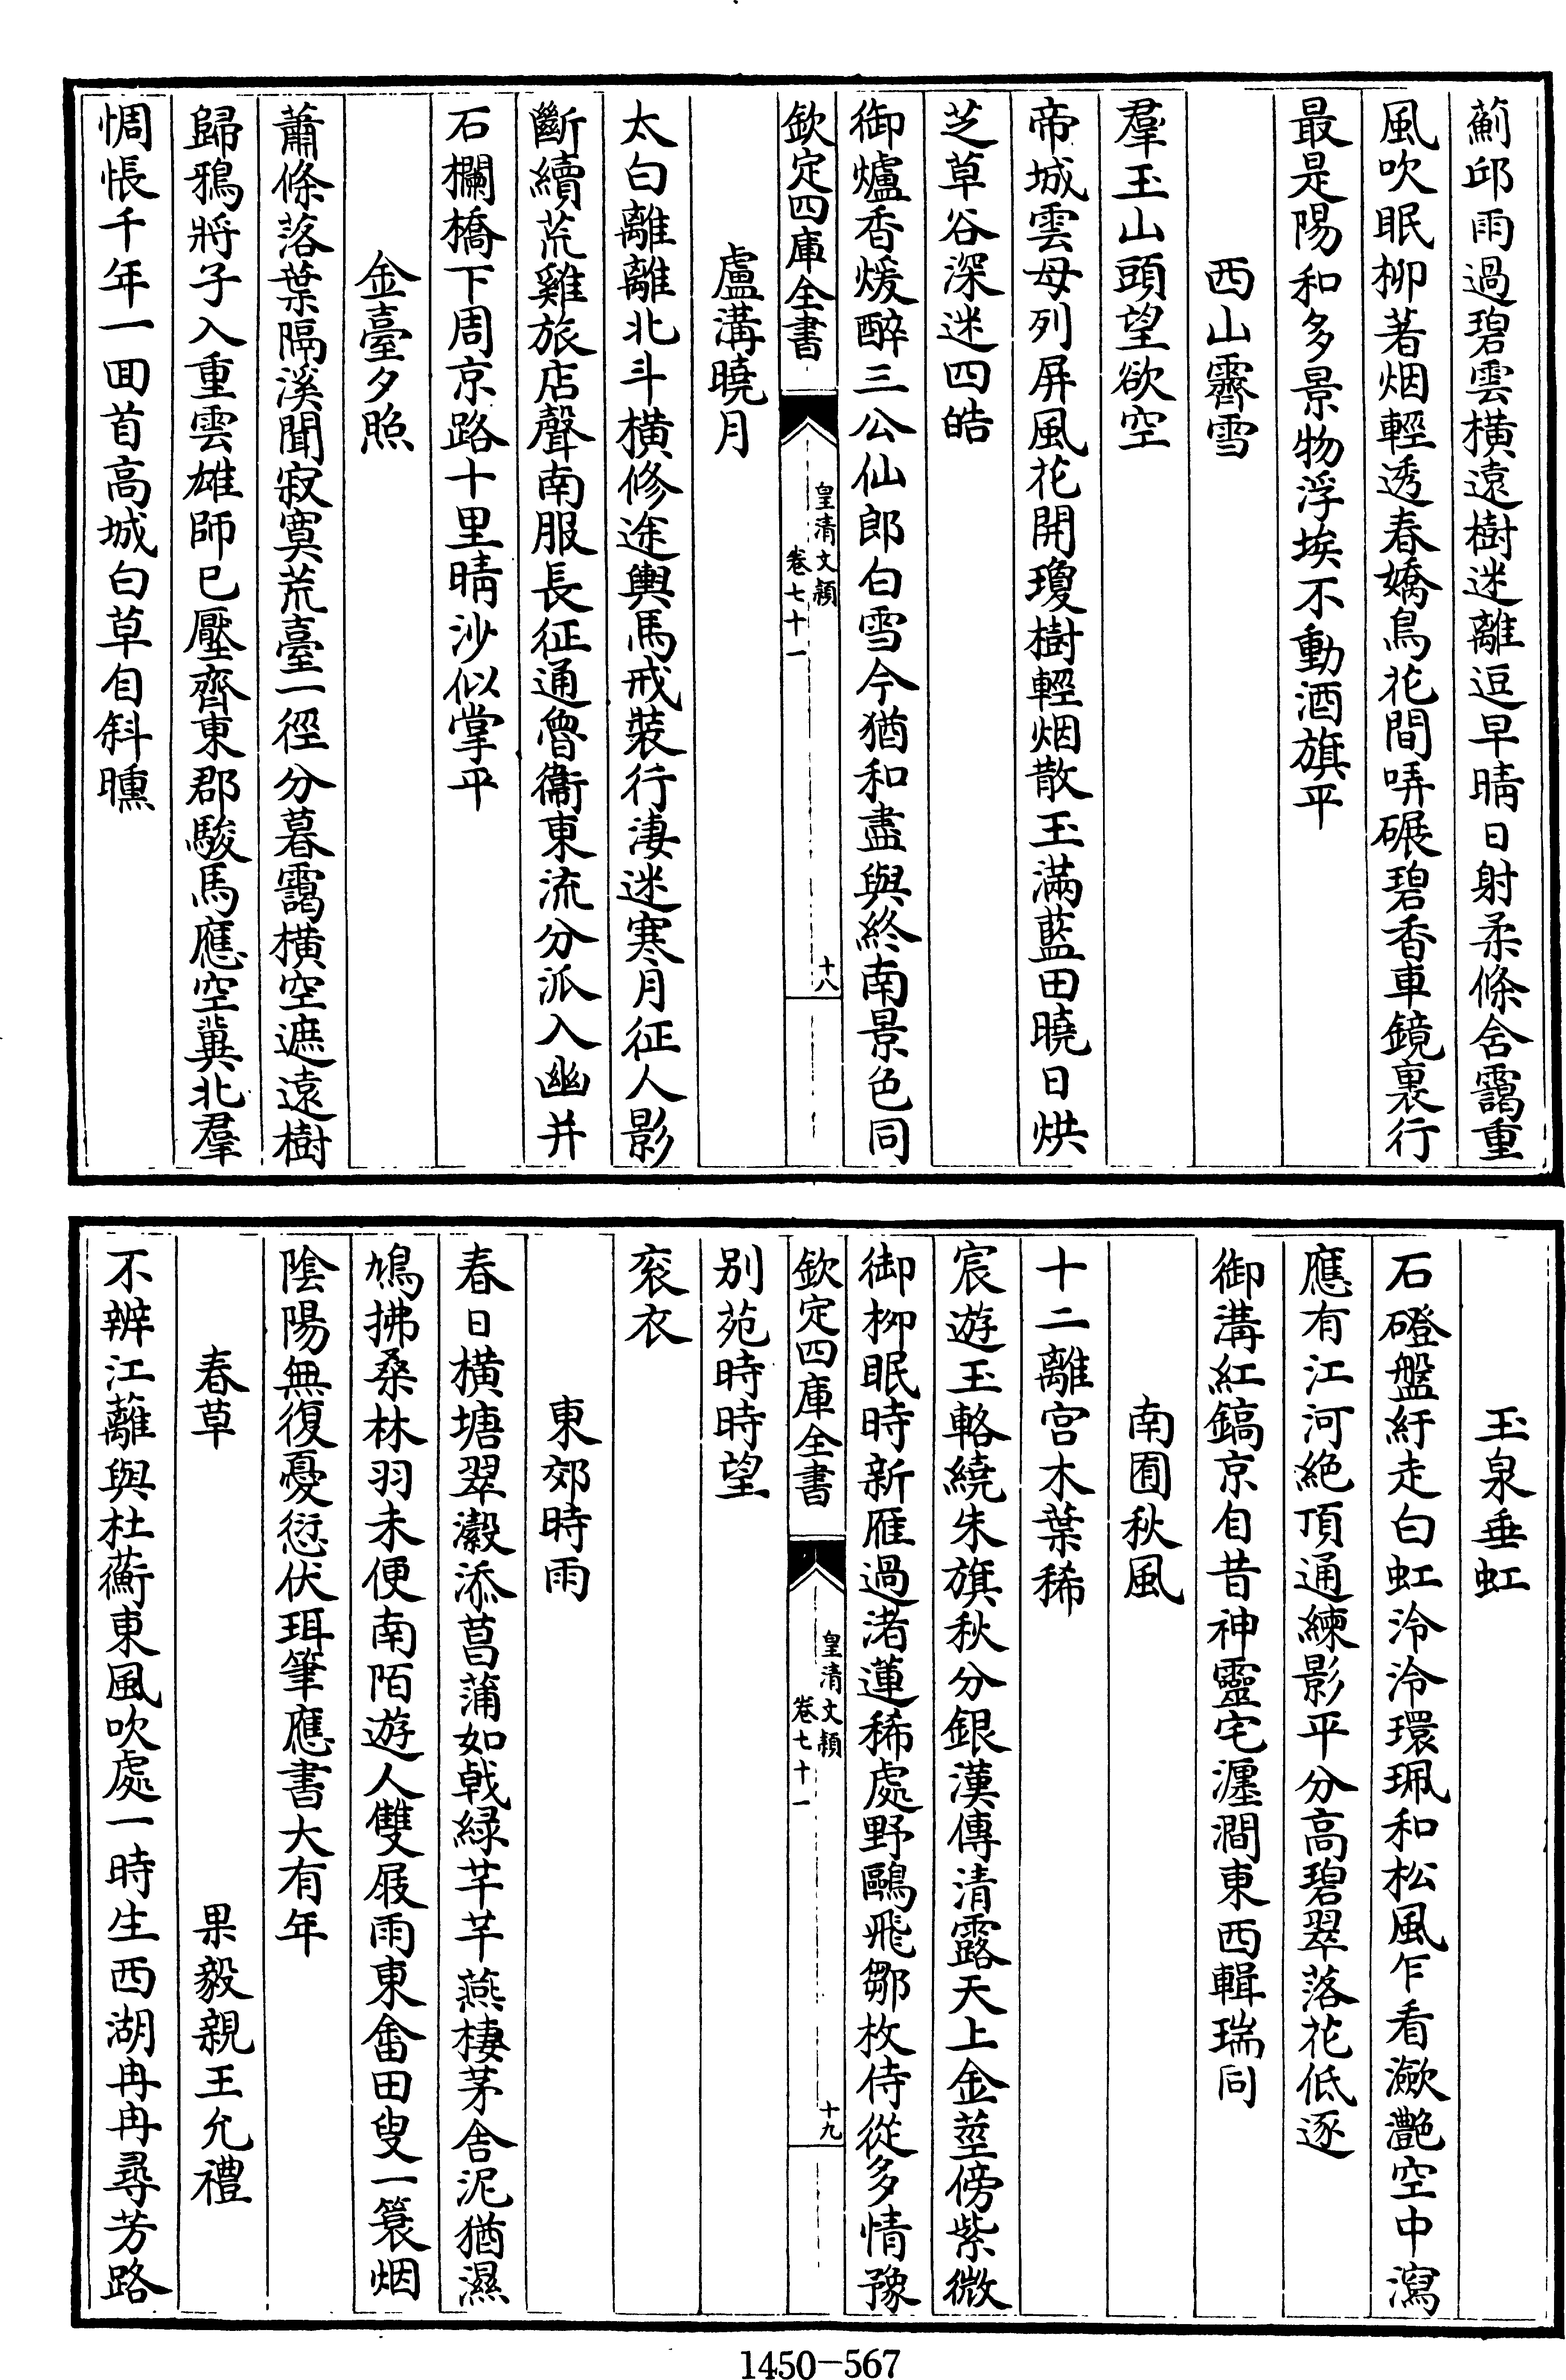 薊邱雨過碧雲橫遠樹迷離逗早晴日射柔條含靄重
風吹眠柳著烟輕透春嬌鳥花間哢碾碧香車鏡裏行
最是陽和多景物浮埃不動酒旗平
西山霽雪
羣玉山頭望欲空
帝城雲母列屏風花開瓊樹輕烟散玉滿藍田曉日烘
芝草谷深迷四皓
御爐香煖醉三公仙郎白雪今猶和盡與終南景色同
欽定四庫全書
皇清文穎
卷七十一
十八
盧溝曉月
太白離離北斗橫修途輿馬戒裝行淒迷寒月征人影
斷續荒雞旅店聲南服長征通魯衞東流分派入幽并
石欄橋下周京路十里晴沙似掌平
金臺夕照
蕭條落葉隔溪聞寂寞荒臺一徑分暮靄橫空遮遠樹
歸鴉將子入重雲雄師已壓齊東郡駿馬應空冀北羣
惆悵千年一回首高城白草自斜曛
玉泉垂虹
石磴盤紆走白虹泠泠環珮和松風乍看瀲灧空中瀉
應有江河絶頂通練影平分高碧翠落花低逐
御溝紅鎬京自昔神靈宅瀍澗東西輯瑞同
南囿秋風
十二離宮木葉稀
宸遊玉輅繞朱旗秋分銀漢傳清露天上金莖傍紫微
御柳眠時新雁過渚蓮稀處野鷗飛鄒枚侍從多情豫
欽定四庫全書
皇清文穎
卷七十一
十九
别苑時時望
衮衣
東郊時雨
春日橫塘翠瀫添菖蒲如戟緑芊芊燕棲茅舍泥猶濕
鳩拂桑林羽未便南陌遊人雙屐雨東畬田叟一簑烟
陰陽無復憂愆伏珥筆應書大有年
春草
果毅親王允禮
不辨江蘺與杜蘅東風吹處一時生西湖冉冉尋芳路
1450-567